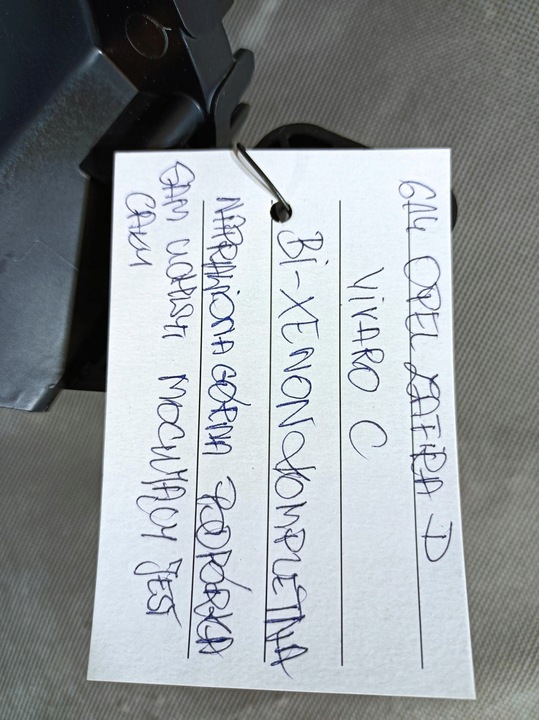 614 OPEL ZAFIRA D
VIVARO C
BI-XENON KOMPLETNA
NAPRAWIONA GÓRNA PODPÓRKA
SAM UCHWYT MOCUJĄCY JEST
CAŁY